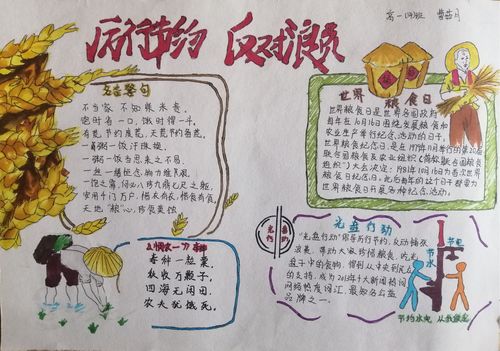 厉行节约 反对浪费
高一四班 曹茁月
名言警句
不当家,不知柴米贵。
饱时省一口,饿时得一斗。
有荒节约度荒,无荒节约备荒。
一粥一饭汗珠换。
一粥一饭当思来之不易
一丝一缕恒念物力维艰
天地"粮"心,珍食莫蚀
悯农
春种一粒粟,
秋收万颗子,
四海无闲田,
农夫犹饿死。
世界粮食日
世界粮食日是世界各国政府
每年在10月16日围绕发展粮食和
农业生产举行纪念活动的日子。
世界粮食纪念日,是在1979年11月举行的第20届
联合国粮食及农业组织(简称联合国粮农
组织)大会决定:1981年10月16日为首次世界粮
食日纪念日。此后每年的这个日子都要为
世界粮食日开展各种纪念活动。
光盘行动
光盘
行动
"光盘行动"倡导厉行节约,反对铺张
浪费,带动大家珍惜粮食,吃光
盘子中的食物,得到从中央到民众
的支持,成为2013年十大新闻热词、
网络热度词汇,最知名公益
品牌之一。
节水
节电
节约水电 从我做起